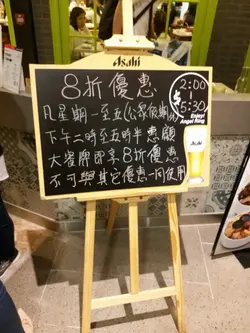 Asahi
8折優惠
凡星期一至五(公眾假期除外)
下午二時至五時半惠顧
大堂即享8折優惠
不可與其它優惠一同使用
2:00
5:30
Enjoy!
Angel Ring
Asahi